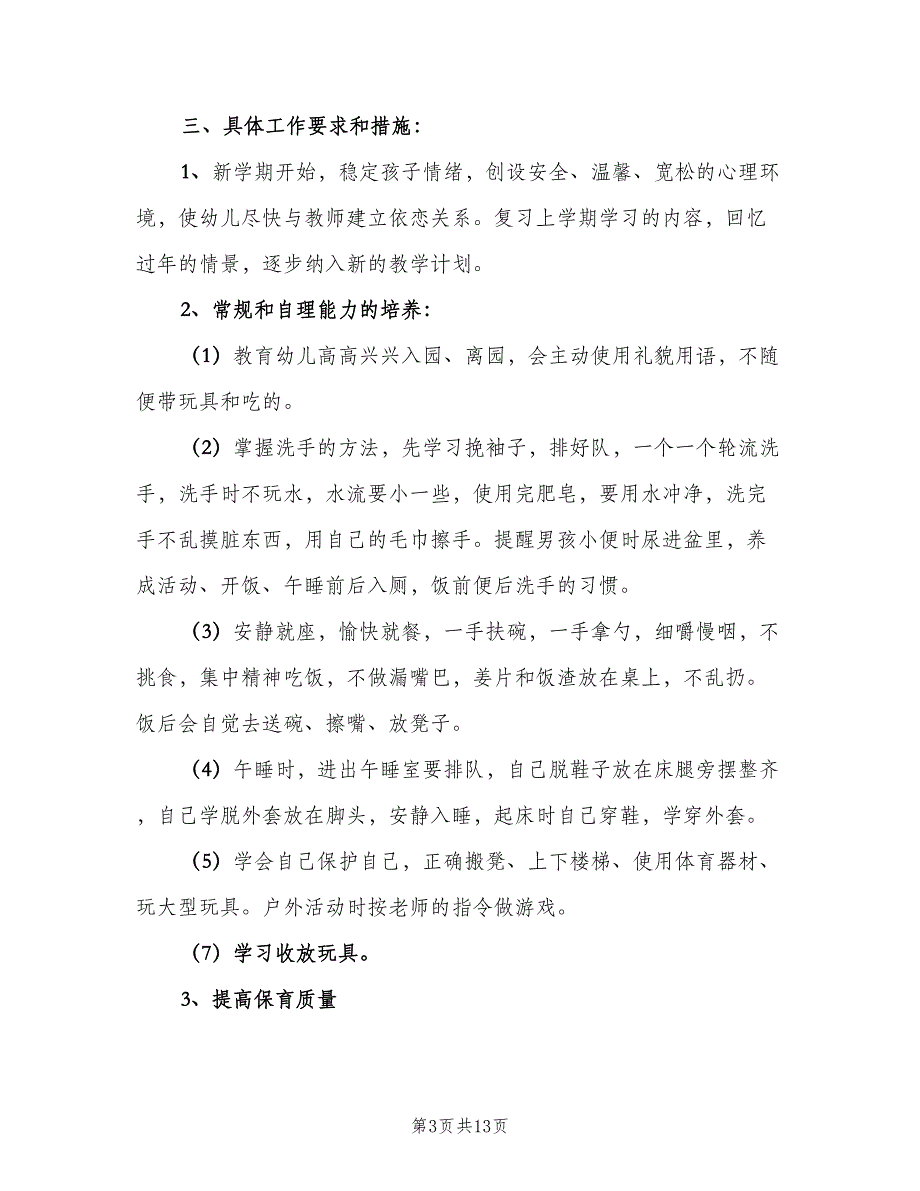 三、具体工作要求和措施：
1、新学期开始，稳定孩子情绪，创设安全、温馨、宽松的心理环
境，使幼儿尽快与教师建立依恋关系。复习上学期学习的内容，回忆
过年的情景，逐步纳入新的教学计划。
2、常规和自理能力的培养：
（1）教育幼儿高高兴兴入园、离园，会主动使用礼貌用语，不随
便带玩具和吃的。
（2）掌握洗手的方法，先学习挽袖子，排好队，一个一个轮流洗
手，洗手时不玩水，水流要小一些，使用完肥皂，要用水冲净，洗完
手不乱摸脏东西，用自己的毛巾擦手。提醒男孩小便时尿进盆里，养
成活动、开饭、午睡前后入厕，饭前便后洗手的习惯。
（3）安静就座，愉快就餐，一手扶碗，一手拿勺，细嚼慢咽，不
挑食，集中精神吃饭，不做漏嘴巴，姜片和饭渣放在桌上，不乱扔。
饭后会自觉去送碗、擦嘴、放凳子。
（4）午睡时，进出午睡室要排队，自己脱鞋子放在床腿旁摆整齐
，自己学脱外套放在脚头，安静入睡，起床时自己穿鞋，学穿外套。
（5）学会自己保护自己，正确搬凳、上下楼梯、使用体育器材、
玩大型玩具。户外活动时按老师的指令做游戏。
（7）学习收放玩具。
3、提高保育质量
第3页共13页